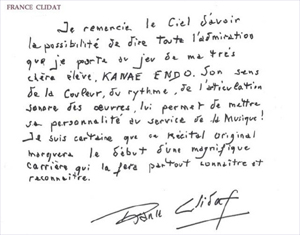 FRANCE CLIDAT
Je remercie le Ciel d'avoir
la possibilité de dire toute l'admiration
que je porte au jeu de ma très
chère élève, KANAE ENDO. Son sens
de la Couleur, du rythme, de l'articulation
sonore des œuvres, lui permet de mettre
sa personnalité au service de la Musique!
Je suis certaine que ce Récital Original
marquera le début d'une magnifique
carrière qui la fera partout connaître et
reconnaître.
France Clidat